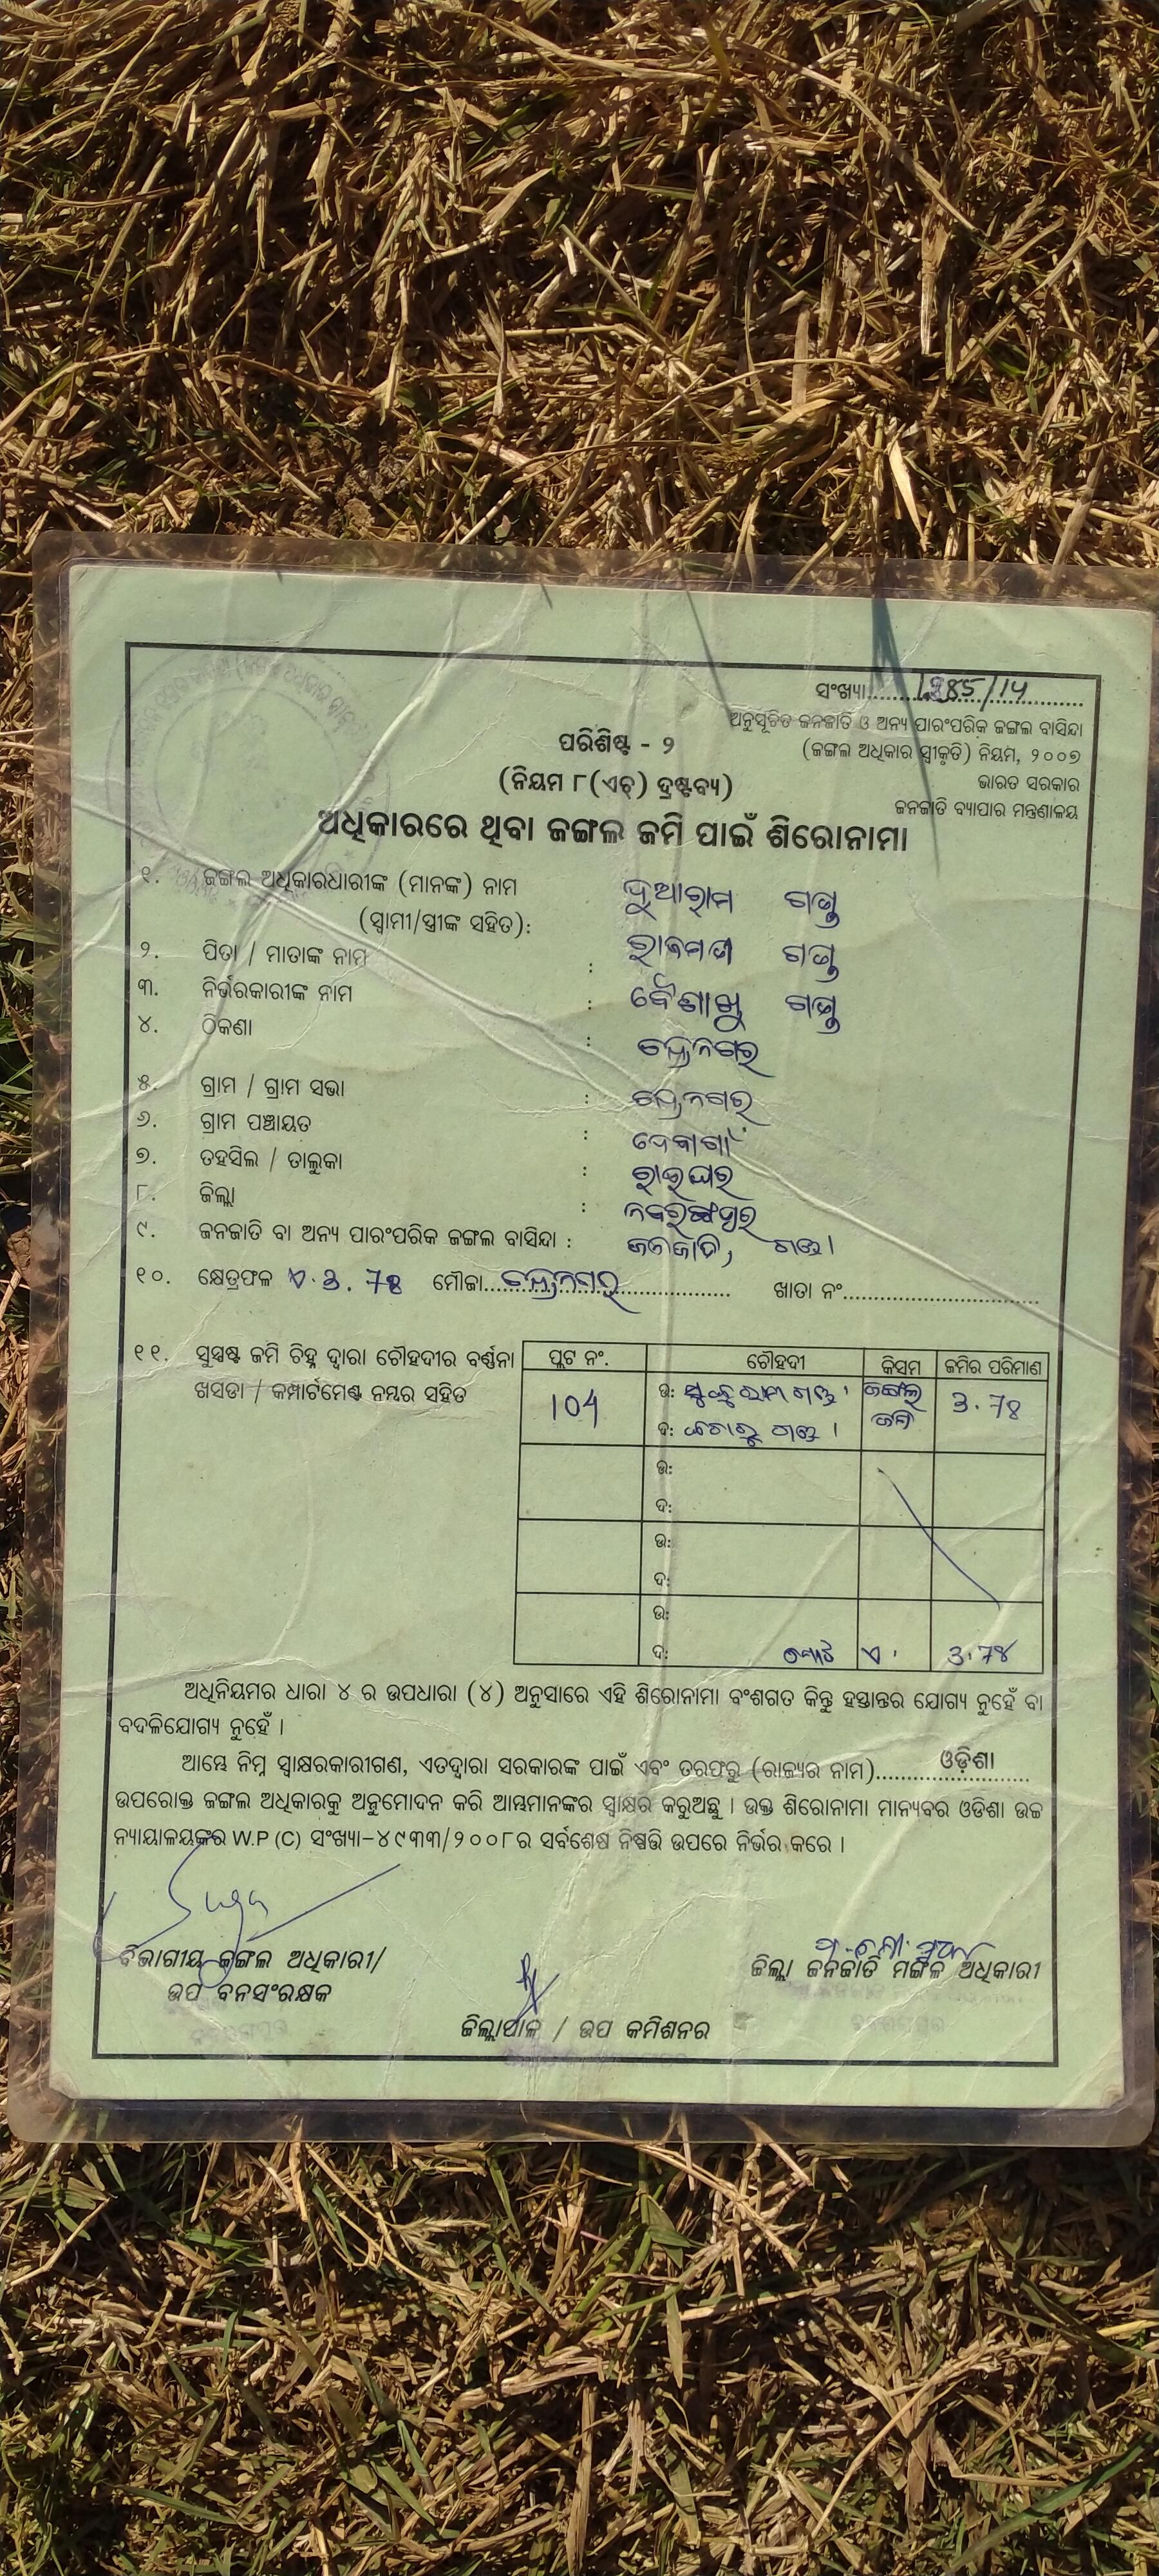 ସଂଖ୍ୟା.......1385/14
ଅନୁସୂଚିତ ଜନଜାତି ଓ ଅନ୍ୟ ପାରଂପରିକ ଜଙ୍ଗଲ ବାସିନ୍ଦା
(ଜଙ୍ଗଲ ଅଧିକାର ସ୍ୱୀକୃତି) ନିୟମ, ୨୦୦୭
ଭାରତ ସରକାର
ଜନଜାତି ବ୍ୟାପାର ମନ୍ତ୍ରଣାଳୟ
ପରିଶିଷ୍ଟ - ୨
(ନିୟମ ୮(ଏଚ୍) ଦ୍ରଷ୍ଟବ୍ୟ)
ଅଧିକାରରେ ଥିବା ଜଙ୍ଗଲ ଜମି ପାଇଁ ଶିରୋନାମା
୧. ଜଙ୍ଗଲ ଅଧିକାରଧାରୀଙ୍କ (ମାନଙ୍କ) ନାମ ଦୁଆରାମ ଗଣ୍ଡ
(ସ୍ୱାମୀ/ସ୍ତ୍ରୀଙ୍କ ସହିତ):
୨. ପିତା / ମାତାଙ୍କ ନାମ : ଗଣ୍ଡ
୩. ନିର୍ଭରକାରୀଙ୍କ ନାମ : ବୈଶାଖୁ ଗଣ୍ଡ
୪. ଠିକଣା :
୫. ଗ୍ରାମ / ଗ୍ରାମ ସଭା :
୬. ଗ୍ରାମ ପଞ୍ଚାୟତ : ଦେବାଗାଁ
୭. ତହସିଲ / ତାଲୁକା : ରାଇଘର
୮. ଜିଲ୍ଲା : ନବରଙ୍ଗପୁର
୯. ଜନଜାତି ବା ଅନ୍ୟ ପାରଂପରିକ ଜଙ୍ଗଲ ବାସିନ୍ଦା : ଜନଜାତି, ଗଣ୍ଡ।
୧୦. କ୍ଷେତ୍ରଫଳ ଏ.3.78 ମୌଜା.......... ଖାତା ନଂ..........
୧୧. ସୁସ୍ପଷ୍ଟ ଜମି ଚିହ୍ନ ଦ୍ୱାରା ଚୌହଦୀର ବର୍ଣ୍ଣନା
ଖସଡା / କମ୍ପାର୍ଟମେଣ୍ଟ ନମ୍ବର ସହିତ
ପ୍ଲଟ ନଂ. ଚୌହଦୀ କିସମ ଜମିର ପରିମାଣ
104 ଉ: ଗଣ୍ଡ। ଜଙ୍ଗଲ ଜମି 3.78
ଦ: ଗଣ୍ଡ।
ଉ:
ଦ:
ଉ:
ଦ:
ଉ:
ଦ: ମୋଟ ଏ. 3.78
ଅଧିନିୟମର ଧାରା ୪ ର ଉପଧାରା (୪) ଅନୁସାରେ ଏହି ଶିରୋନାମା ବଂଶଗତ କିନ୍ତୁ ହସ୍ତାନ୍ତର ଯୋଗ୍ୟ ନୁହେଁ ବା
ବଦଳିଯୋଗ୍ୟ ନୁହେଁ ।
ଆମ୍ଭେ ନିମ୍ନ ସ୍ୱାକ୍ଷରକାରୀଗଣ, ଏତଦ୍ୱାରା ସରକାରଙ୍କ ପାଇଁ ଏବଂ ତରଫରୁ (ରାଜ୍ୟର ନାମ)......ଓଡ଼ିଶା......
ଉପରୋକ୍ତ ଜଙ୍ଗଲ ଅଧିକାରକୁ ଅନୁମୋଦନ କରି ଆମ୍ଭମାନଙ୍କର ସ୍ୱାକ୍ଷର କରୁଅଛୁ । ଉକ୍ତ ଶିରୋନାମା ମାନ୍ୟବର ଓଡିଶା ଉଚ୍ଚ
ନ୍ୟାୟାଳୟଙ୍କର W.P (C) ସଂଖ୍ୟା-୪୯୩୩/୨୦୦୮ର ସର୍ବଶେଷ ନିଷ୍ପତ୍ତି ଉପରେ ନିର୍ଭର କରେ ।
ବିଭାଗୀୟ ଜଙ୍ଗଲ ଅଧିକାରୀ/
ଉପ ବନସଂରକ୍ଷକ
ଜିଲ୍ଲା ଜନଜାତି ମଙ୍ଗଳ ଅଧିକାରୀ
ଜିଲ୍ଲାପାଳ / ଉପ କମିଶନର